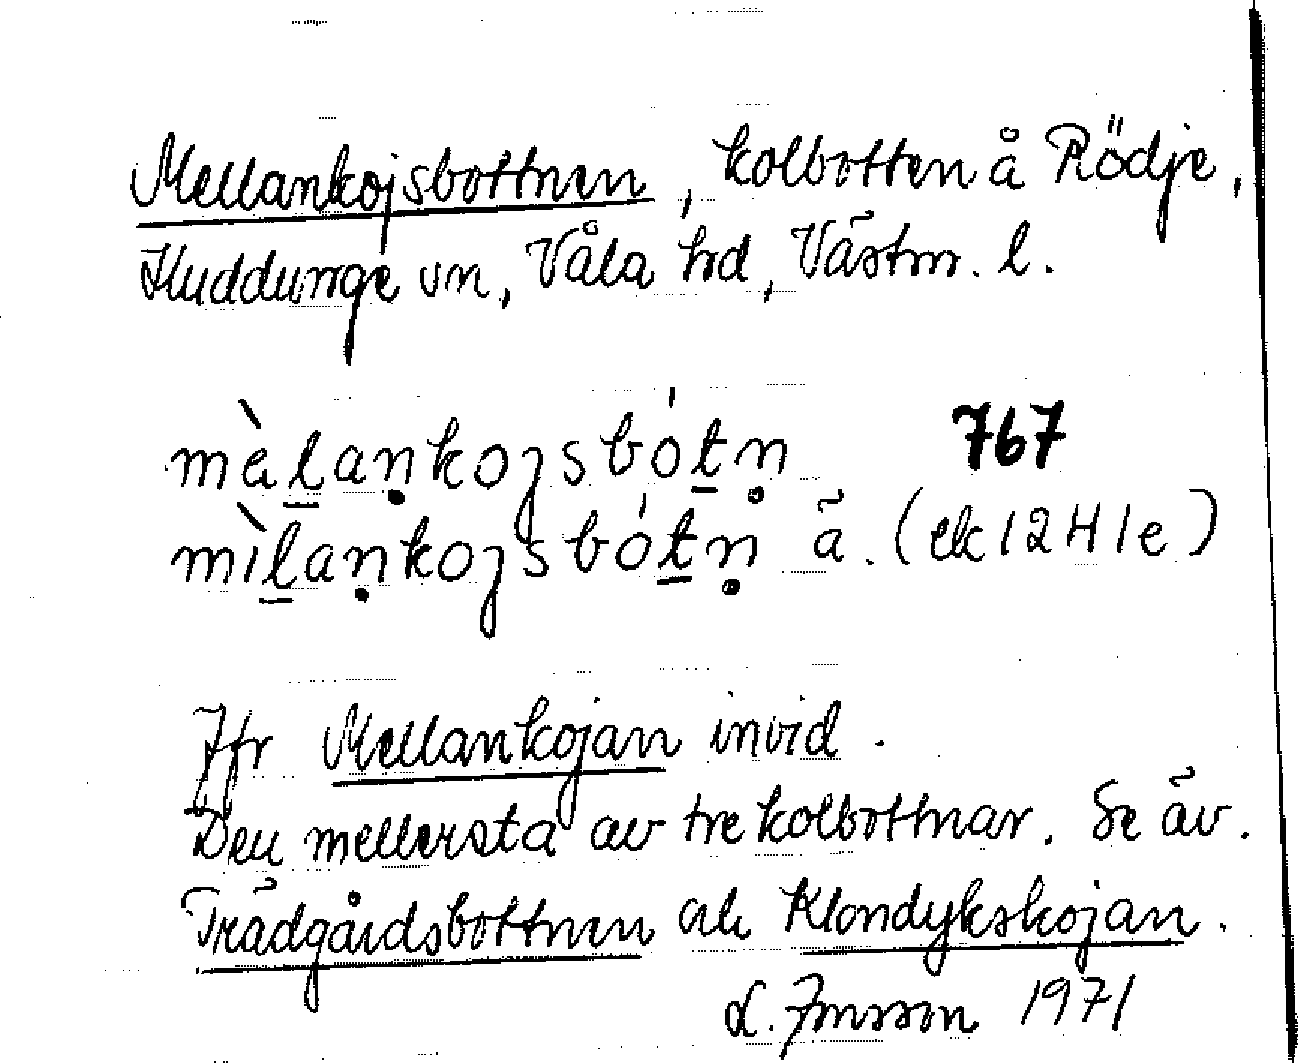 Mellankojsbottnen, kolbotten å Rödje,
Huddunge sn, Våla hd, Västm. l.
mèl̲aṇkojsbót̲ṇ 767
mìl̲aṇkojsbót̲ṇ ä. (ek 12 H 1e)
Jfr Mellankojan invid.
Den mellersta av tre kolbottnar. Se äv.
Trädgårdsbottnen och Klondykskojan.
1971